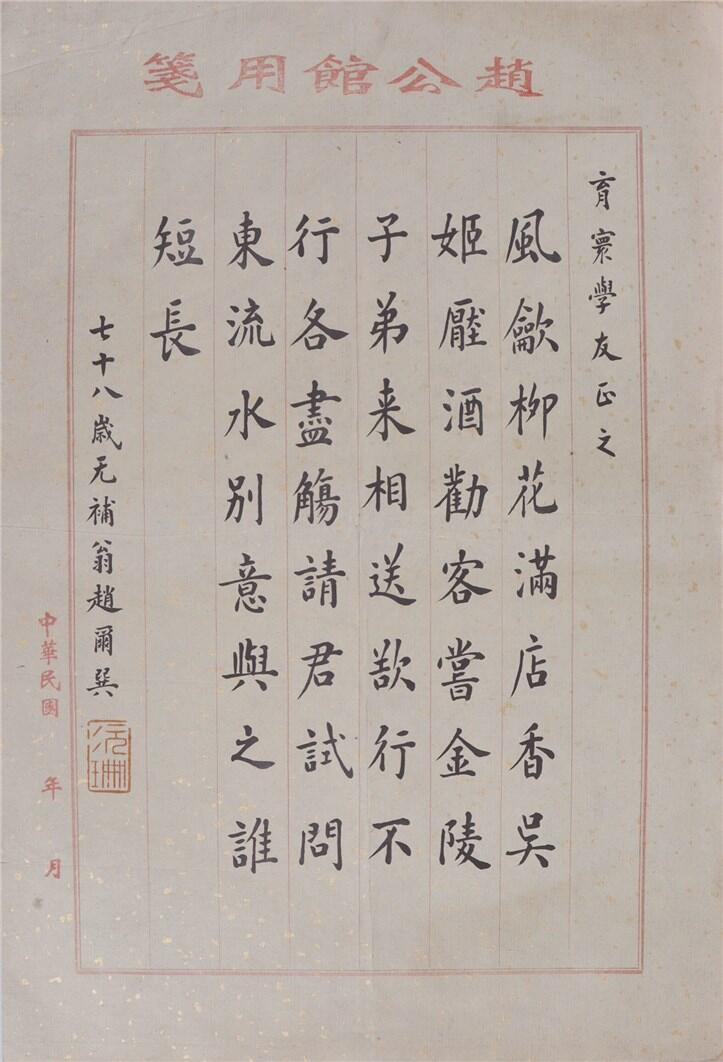 趙公館用箋
育寰學友正之
風歙柳花滿店香吳
姬壓酒勸客嘗金陵
子弟来相送欲行不
行各盡觴請君試問
東流水別意與之誰
短長
七十八歲无補翁趙爾巽
中華民國 年 月